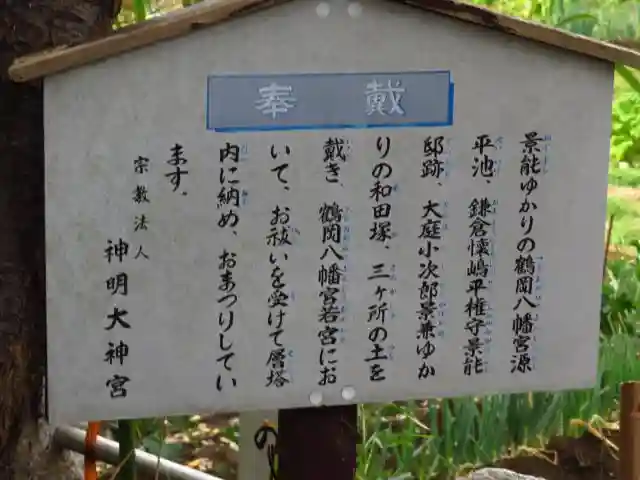 戴奉
景能ゆかりの鶴岡八幡宮源
平池、鎌倉懐嶋平権守景能
邸跡、大庭小次郎景兼ゆか
りの和田塚、三ヶ所の土を
戴き、鶴岡八幡宮若宮にお
いて、お祓いを受けて層塔
内に納め、おまつりしてい
ます。
宗教法人
神明大神宮